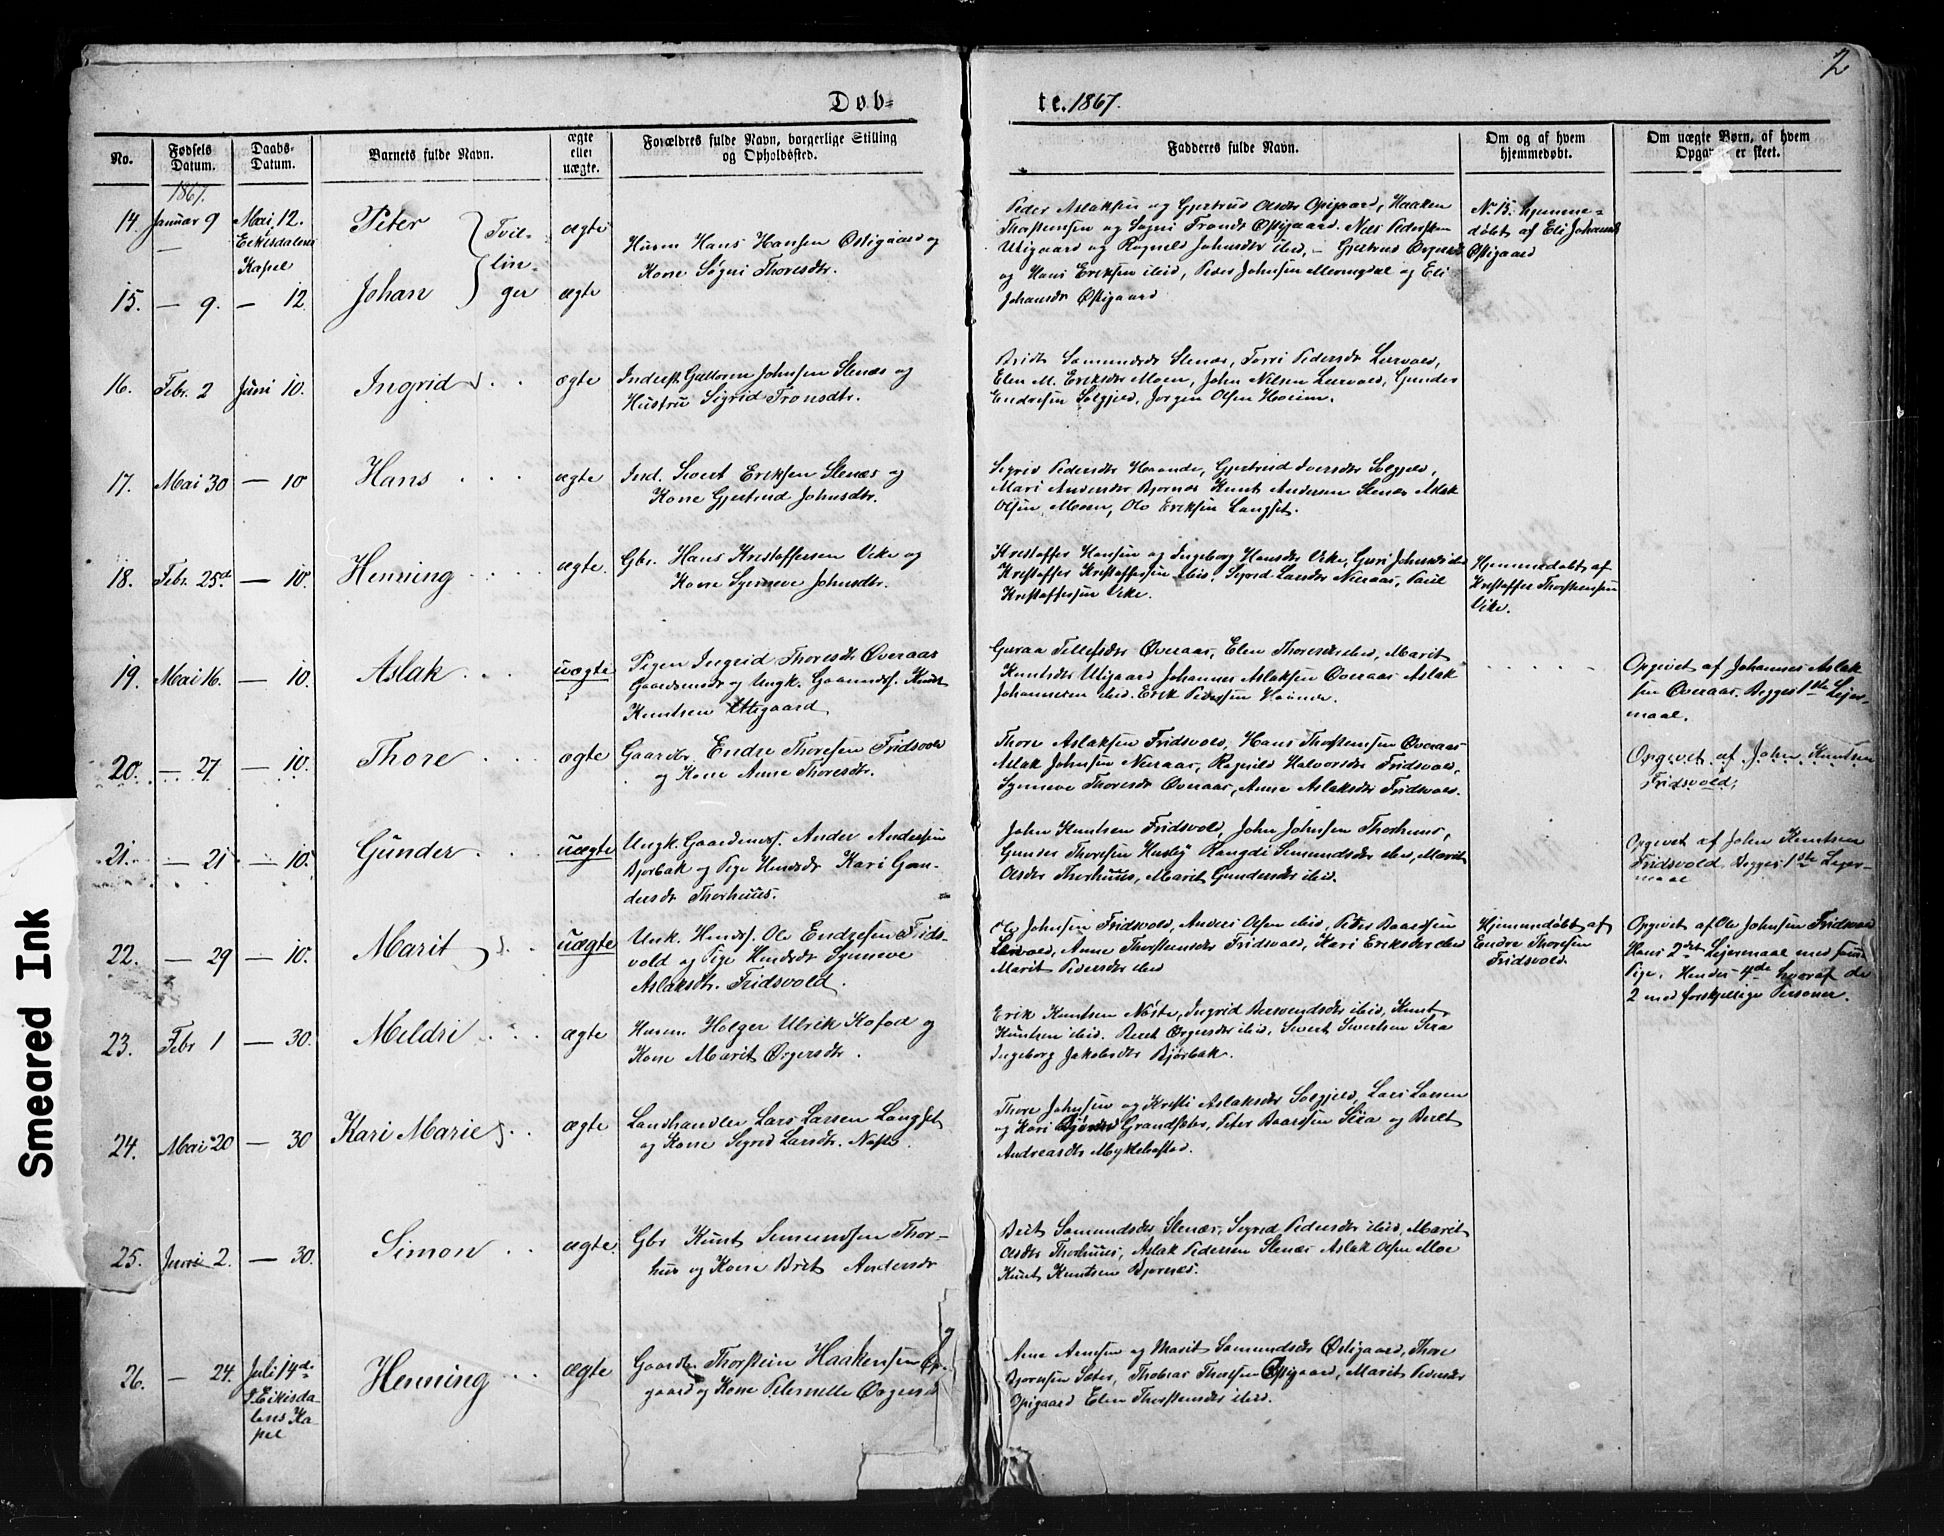 2
Døb= te. 1867.
No. Fødsels Datum. Daabs- Datum. Barnets fulde Navn. ægte eller uægte. Forældres fulde Navn, borgerlige Stilling og Opholdssted. Fadderes fulde Navn. Om og af hvem hjemmedøbt. Om uægte Børn, af hvem Opgaven er skeet.
1867.
14. Januar 9 Mai 12. Eckisdalens Kapel Peter Tvil- ægte
15. — 9. — 12 Johan lin- ger ægte
Husm Hans Hansen Østigaard og
Kone Søgni Thoresdtr.
Peder Aslaksen og Gjertrud Olsdtr Opigaard, Haaken
Thorstensen og Sogni Trondt Østigaard. Niels Pedersen
Utigaard og Ragnild Johnsdtr ibid, — Gjertrud
og Hans Eriksen ibid, Peder Johnsen Meringdal og Eli
Johansdr Østigaard
No. 15. hjemme-
døbt af Eli Johansd
Østigaard
16. Febr. 2 Juni 10. Ingrid ægte
Inderst. Guttorm Johnsen Slenes og
Hustru Sigrid Tronsdtr.
Bridt Samundsdr Slenæs, Torri Pedersdr Lervold,
Elen M. Eriksdtr Moen, John Nilsen Lervold, Gunder
Endresen Solgjeld, Jørgen Olsen Hoeim.
17. Mai 30 — 10 Hans ægte
Ind. Sivert Eriksen Slenæs og
Kone Gjertrud Johnsdtr.
Sigrid Pedersdtr Haande, Gjertrud Iversdtr Solgjeld,
Mari Andersdr Bjornæs Knut Andersen Slenæs Aslak
Olsen Moen, Ole Eriksen Langset.
18. Febr. 25de — 10. Henning ægte.
Gbr. Hans Kristoffersen Vike og
Kone Synneve Johnsdtr.
Kristoffer Hansen og Ingeborg Hansdtr Vike, Guri Johnsdr ibid
Kristoffer Kristoffersen ibid, Sigrid Larsdr Neraas, Paul
Kristoffersen Vike.
Hjemmedøbt af
Kristoffer Thorstensen
Vike.
19. Mai 16. — 10. Aslak uægte
Pigen Ingrid Thoresdtr Øveraas
Gaardmdr og Ungk. Gaardmdsf. Knut
Knutsen Utigaard
Guraa Tellefsdtr Øveraas, Elen Thoresdtr ibid, Marit
Knutsdtr Utigaard Johannes Aslaksen Øveraas Aslak
Johannesen ibid. Erik Pedersen Haande.
Opgivet af Johannes Aslak
sen Øveraas. Begges 1ste Lejer-
maal.
20. — 27 — 10. Thore ægte
Gaardbr. Endre Thoresen Fridsvold
og Kone Anne Thoresdtr.
Thore Aslaksen Fridsvold, Hans Thorstensen Øveraas
Aslak Johnsen Neraas, Ragnild Halvorsdtr Fridsvold,
Synneve Thoresdtr Øveraas, Anne Aslaksdtr Fridsvold.
Opgivet af John Knutsen
Fridsvold,
21. — 21 — 10. Gunder uægte
Ungk. Gaardmds. Ander Andersen
Bjorbak og Pige Kari Gun-
dersdr Thorhuus.
John Knutsen Fridsvold, John Johnsen Thorhuus,
Gunder Thoresen Husby Randi Semundsdtr ibid, Marit
Olsdtr Thorhuus, Marit Gundersdtr ibid.
Opgivet af John Knutsen
Fridsvold. Begges 1ste Lejer-
maal
22. — 29 — 10. Marit uægte
Unk. Ole Endresen Frids-
vold og Pige Synneve
Aslaksdtr. Fridsvold.
Ole Johnsen Fridsvold, Anders Olsen ibid, Peder Baardsen
Lervold, Anne Thorstensdtr Fridsvold, Kari Eriksdtr ibid
Marit Pedersdtr ibid
Hjemmdøbt af
Endre Thoresen
Fridsvold.
Opgivet af Ole Johnsen Fridsvold
Hans 2det Lejermaal med samme
Pige. Hendes 4de hvoraf de
2 med forskjellige Personer.
23. Febr 1 — 30. Meldri ægte
Husm. Holger Ulrik Kofod og
Kone Marit Ørgersdtr.
Erik Knutsen Nøste, Ingrid ibid, Knut
Knutsen ibid. Beret Ørgersdtr ibid, Sivert Sivertsen Sira
Ingeborg Jakobsdtr Bjørbak.
24. Mai 20 — 30 Kari Marie ægte
Landhandler Lars Larsen Langset
og Kone Sigrid Larsdtr. Nøste
Thore Johnsen og Kristi Aslaksdtr Solgjeld, Lars Larsen
og Kari Peter Baardsen Sira og Beret
Andreasdtr Myklebostad.
25. Juni 2. — 30. Simon ægte.
Gbr Knut Semundsen Thor-
hus og Kone Brit Andersdr
Brit Samundsdtr Slenæs, Sigrid Pedersdtr ibid, Marit
Olsdtr Thorhuus, Aslak Pedersen Slenæs Aslak Olsen Moe
Knut Knutsen Bjornæs.
26. — 24. Juli 14de i Eikisda- lens Ka- pel Henning ægte
Gaardbr. Thorstein Haakensen Op-
gaard og Kone Pelernelle Ørgersd
Arne Arnesen og Marit Samundsdr Østigaard, Thore
Bjornsen Seter, Thomas Thoresen Østigaard, Marit Pedersdtr
Opigaard Elen Thorstensdtr ibid.
Smeared Ink